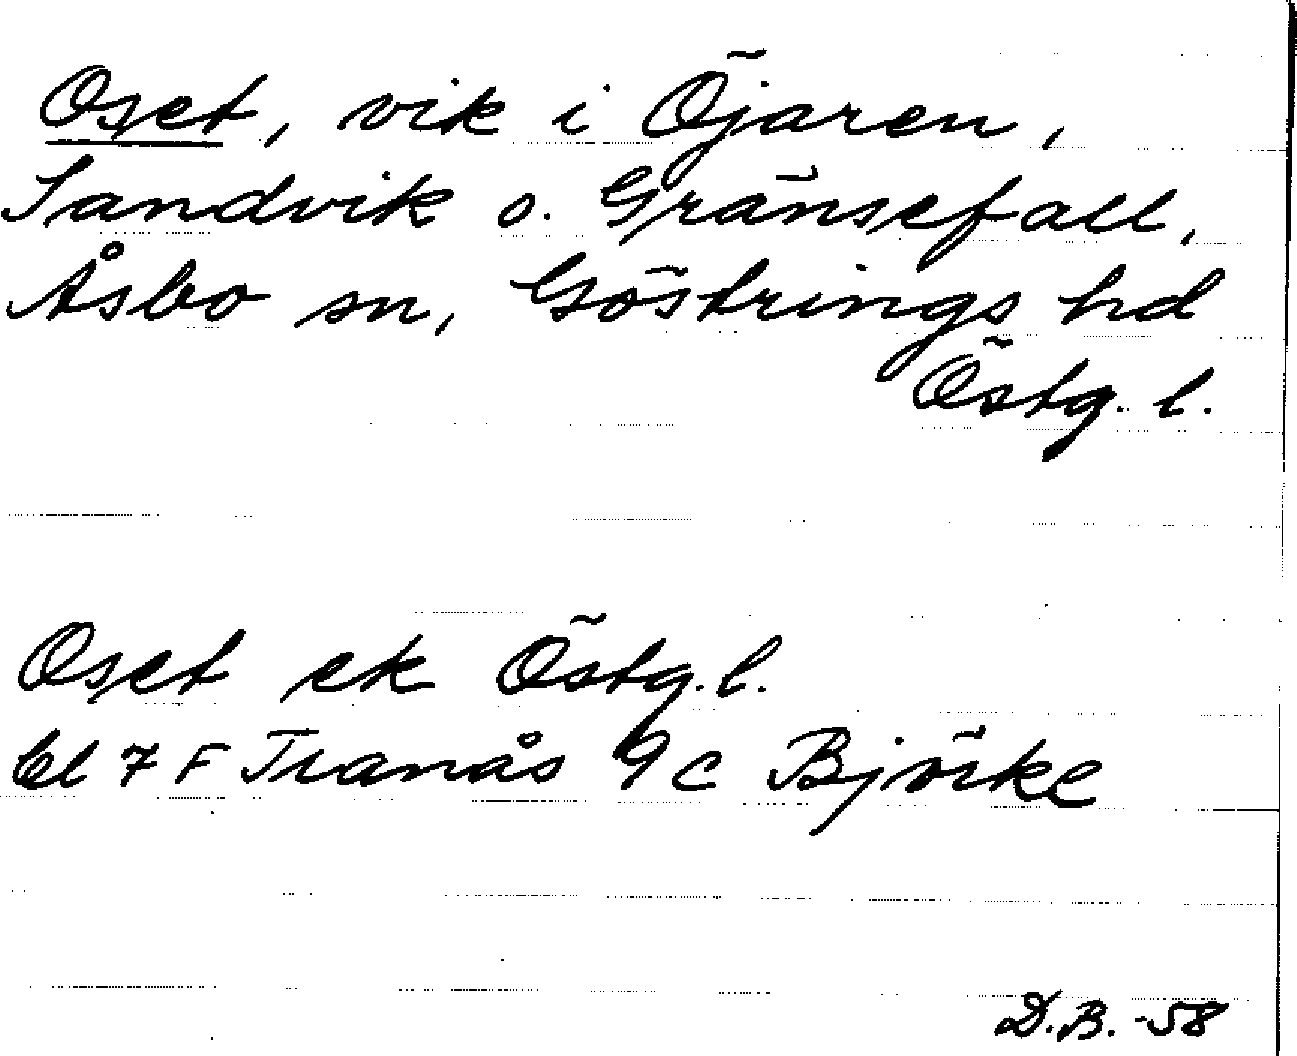 Oset, vik i Öjaren,
Sandvik o. Gränsefall,
Åsbo sn, Göstrings hd
Östg. l.
Oset ek Östg. l.
bl 7 F Tranås 9 c Björke
D.B. -58